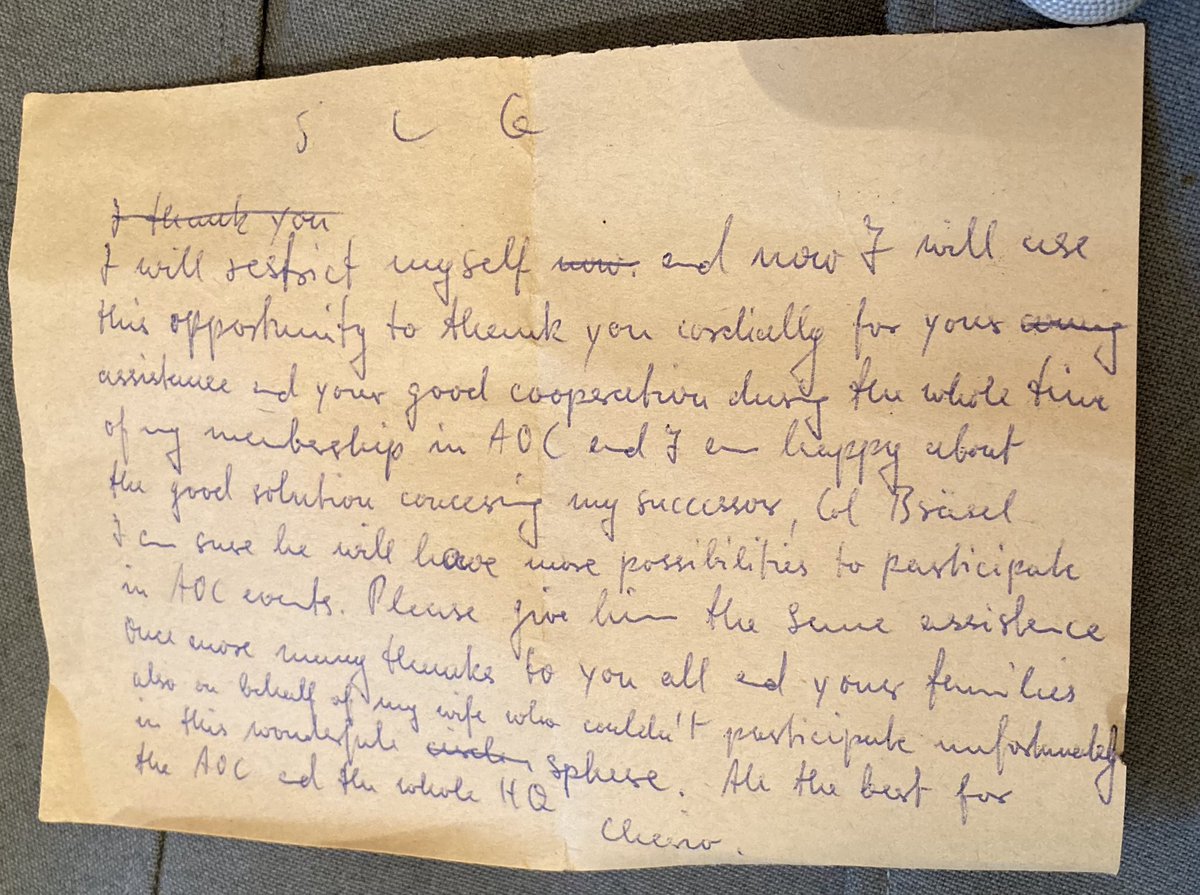 S L G
I thank you
I will restrict myself now. and now I will use
this opportunity to thank you cordially for your
assistance and your good cooperation during the whole time
of my membership in AOC and I am happy about
the good solution concering my successor, Col Bräsel
I am sure he will have more possibilities to participate
in AOC events. Please give him the same assistence
Once more many thanks to you all and your families
also on behalf of my wife who couldn't participate unfortunately
in this wonderfule sphere. All the best for
the AOC and the whole HQ